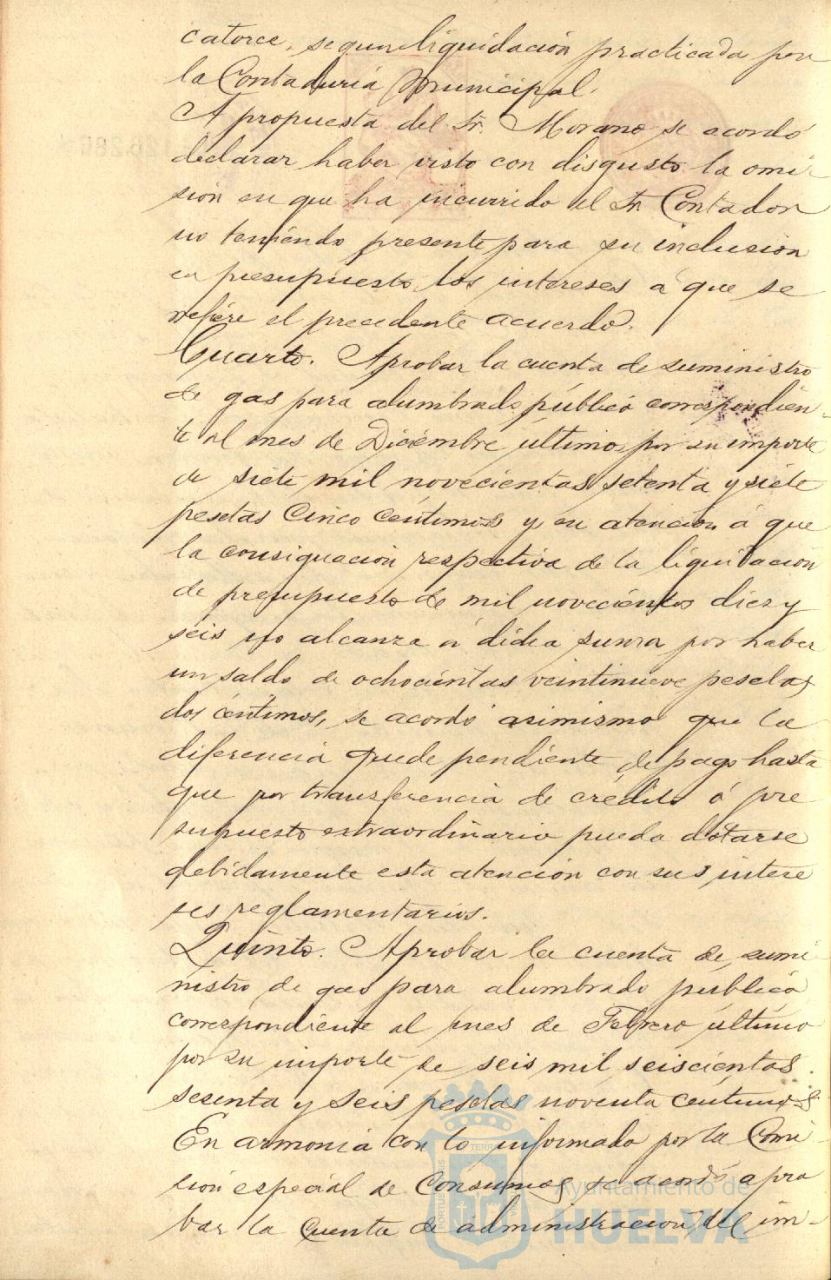 catorce, segun liquidación practicada por
la Contaduria Municipal.
A propuesta del Sr. Morano se acordó
declarar haber visto con disgusto la omi-
sión en que ha incurrido el Sr Contador
no teniendo presente para su inclusion
en presupuesto los intereses a que se
refiere el precedente acuerdo.
Cuarto. Aprobar la cuenta de suministro
de gas para alumbrado público correspondien-
te al mes de Diciembre último, por su importe
de siete mil novecientas setenta y siete
pesetas Cinco Céntimos y en atención á que
la consignacion respectiva de la liquidacion
de presupuesto de mil novecientos diez y
séis no alcanza á dicha suma por haber
un saldo de ochocientas veintinueve pesetas
dos céntimos, se acordó asimismo que la
diferencia quede pendiente de pago hasta
que por transferencia de crédito ó pre
supuesto extraordinario pueda dotarse
debidamente esta atención con sus intere
ses reglamentarios.
Quinto. Aprobar la cuenta de sumi-
nistro de gas para alumbrado publico
correspondiente al mes de Febrero último
por su importe de seis mil seiscientas
sesenta y seis pesetas noventa céntimos
En armonia con lo informado por la Comi
sion especial de Consumos, se acordó apro
bar la Cuenta de administracion del im-
Ayuntamiento de
HUELVA